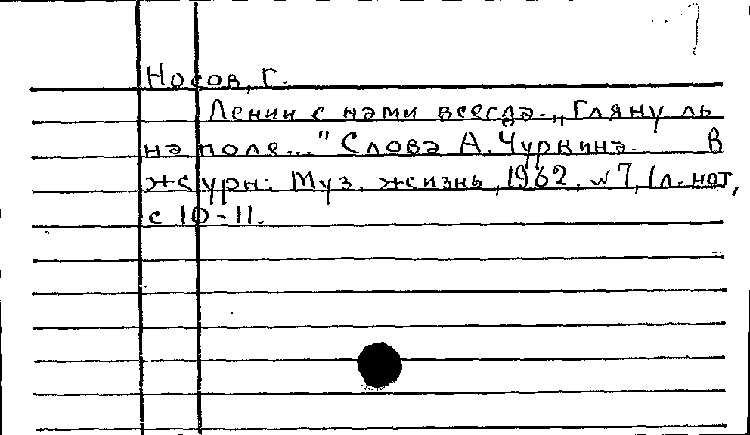 Носов, Г.
Ленин с нами всегда. „Гляну ль
на поля..." Слова А. Чуркина. В
журн: Муз. жизнь, 1962, №7, 1л. нот,
с 10-11.